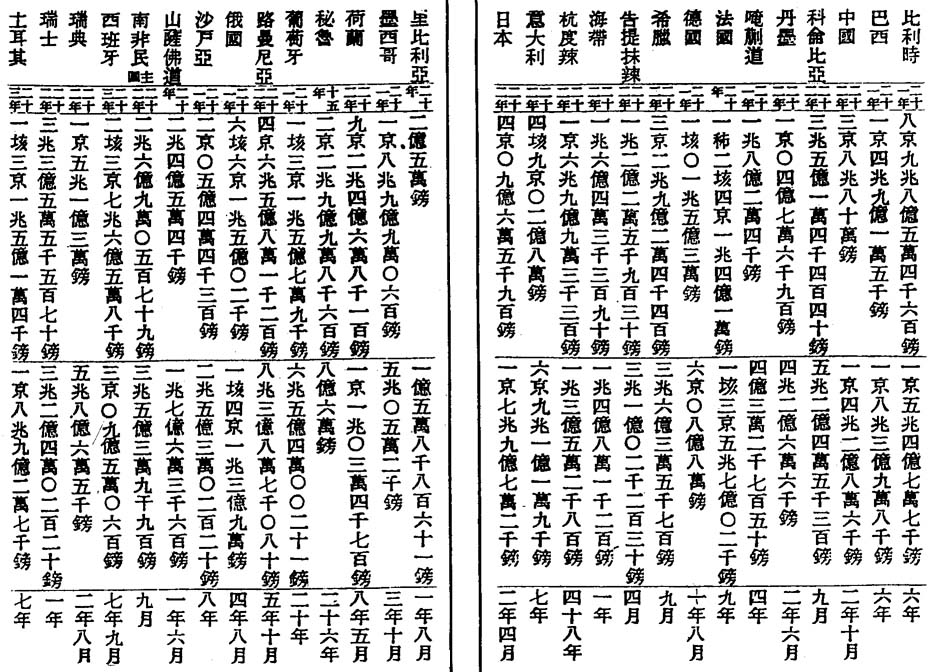 比利時 八京九兆八億五萬四千六百鎊 一京五兆四億七萬七千鎊 六年
巴西 一京四兆九億一萬五千鎊 一京八兆三億九萬八千鎊 六年
中國 三京八兆八十萬鎊 一京四兆二億八萬六千鎊 二年十月
科侖比亞 三兆五億一萬四千四百四十鎊 五兆二億四萬五千三百鎊 九月
丹墨 一京〇四億七萬六千九百鎊 四兆二億六萬六千鎊 二年六月
道 一兆八億二萬四千鎊 四億三萬二千七百五十鎊 四年
法國 一稀二垓四京一兆四億一萬鎊 一垓三京五兆七億〇二千鎊 九年
德國 一垓〇一兆五億三萬鎊 六京〇八億八萬鎊 十年八月
希臘 三京二兆九億二萬四千四百鎊 三兆六億三萬五千七百鎊 九月
告提抹辣 一兆二億二萬五千九百三十鎊 三兆一億〇二千二百三十鎊 四月
海帶 一兆六億四萬三千三百九十鎊 一兆四億八萬一千二百鎊 一年
杭度辣 一京六兆九億九萬三千三百鎊 一兆三億五萬二千八百鎊 四十八年
意大利 四垓九京〇二億八萬鎊 六京九兆一億一萬九千鎊 七年
日本 四京〇九億六萬五千九百鎊 一京七兆九億七萬二千鎊 二年四月
里比利亞 二億五萬鎊 一億五萬八千八百六十一鎊 一年八月
墨西哥 一京八兆九億九萬〇六百鎊 五兆〇五萬二千鎊 三年十月
荷蘭 九京二兆四億六萬八千一百鎊 一京一兆〇三萬四千七百鎊 八年五月
秘魯 二京二兆九億九萬八千六百鎊 八億六萬鎊 二十六年
葡萄牙 一垓三京一兆五億七萬九千鎊 六兆五億四萬〇〇二十一鎊 二十年
路曼尼亞 四京六兆五億八萬一千二百鎊 八兆三億八萬七千〇八十鎊 五年十月
俄國 六垓六京一兆五億〇二千鎊 一垓四京一兆三億九萬鎊 四年八月
沙戸亞 二京〇五億四萬四千三百鎊 二兆五億三萬〇二百二十鎊 八年
山薩佛道 二兆四億五萬四千鎊 一兆七億六萬三千六百鎊 一年六月
南非民主國 二兆六億九萬〇五百七十九鎊 三兆五億三萬九千九百鎊 九月
西班牙 二垓三京七兆六億五萬八千鎊 三京〇九億五萬〇六百鎊 七年九月
瑞典 一京五兆一億三萬鎊 五兆八億六萬五千鎊 二年八月
瑞士 三兆三億五萬五千五百七十鎊 三兆二億四萬〇二百二十鎊 一年
土耳其 一垓三京一兆五億一萬四千鎊 一京八兆九億二萬七千鎊 七年